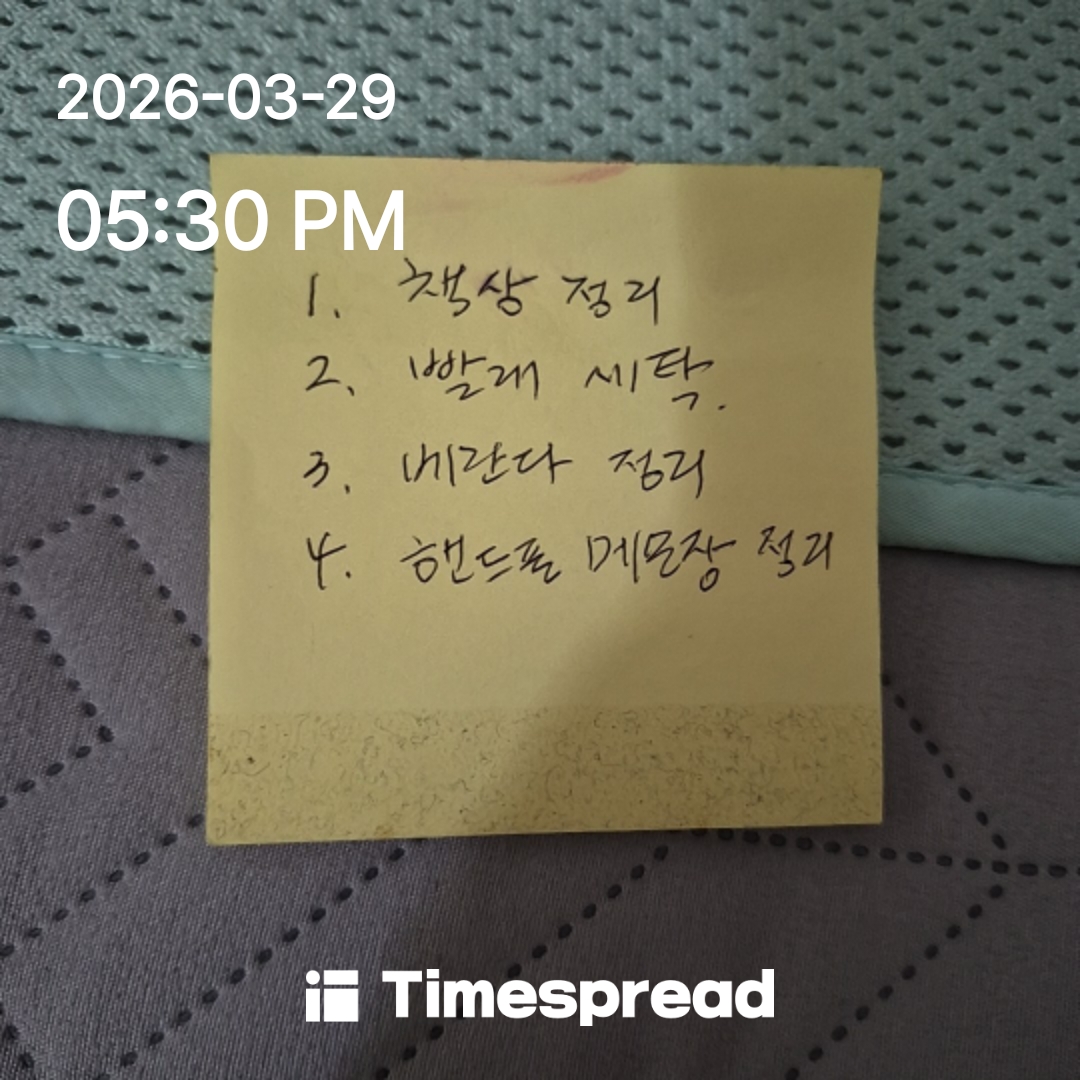 2026-03-29
05:30 PM
1. 책상 정리
2. 빨래 세탁.
3. 베란다 정리
4. 핸드폰 메모장 정리
Timespread